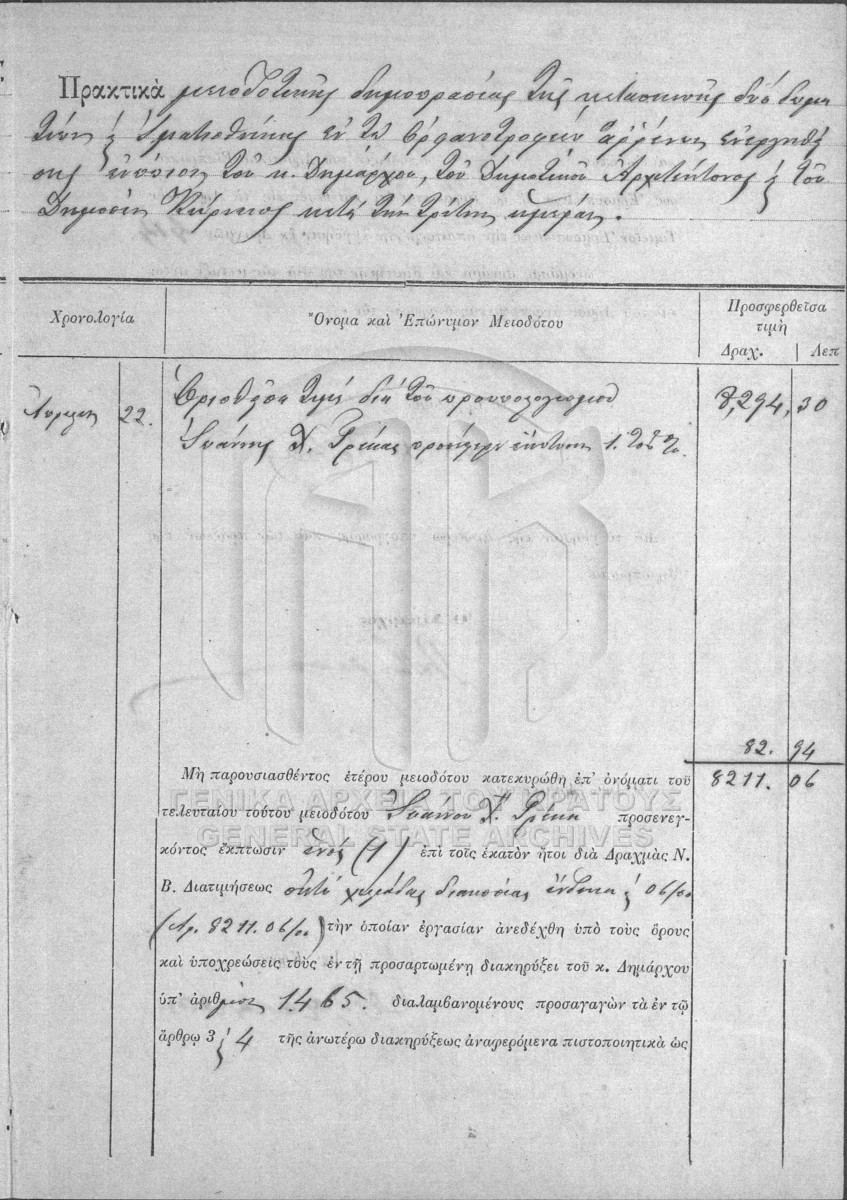 Πρακτικὰ μειοδοτικῆς δημοπρασίας τῆς κατασκευῆς δύο δωμα
τίων & ἱματιοθήκης ἐν τῷ Ὀρφανοτροφείῳ ἀῤῥένων ἐνεργηθεί
σης ἐνώπιον τοῦ κ. Δημάρχου, τοῦ Δημοτικοῦ Ἀρχιτέκτονος & τοῦ
Δημοσίου Κήρυκος κατὰ τὴν τρίτην ἡμέραν.
Χρονολογία
Ὄνομα καὶ Ἐπώνυμον Μειοδότου
Προσφερθεῖσα
τιμὴ
Δραχ. Λεπ
Ὁρισθεῖσα τιμὴ διὰ τοῦ προϋπολογισμοῦ 8,294, 30
Ἀπριλίου 22.
Ἰωάννης Χ. Γρίκας προσέφερεν ἔκπτωσιν 1. τοῖς %.
82. 94
Μὴ παρουσιασθέντος ἑτέρου μειοδότου κατεκυρώθη ἐπ' ὀνόματι τοῦ 8211. 06
ΓΕΝΙΚΑ ΑΡΧΕΙΑ ΤΟΥ ΚΡΑΤΟΥΣ
τελευταίου τούτου μειοδότου Ἰωάννου Χ. Γρίκα προσενεγ-
GENERAL STATE ARCHIVES
κόντος ἔκπτωσιν ἑνὸς (1) ἐπὶ τοῖς ἑκατὸν ἤτοι διὰ Δραχμὰς Ν.
Β. Διατιμήσεως ὀκτὼ χιλιάδας διακοσίας ἕνδεκα & 06/00
(Δρ. 8211. 06/00) τὴν ὁποίαν ἐργασίαν ἀνεδέχθη ὑπὸ τοὺς ὅρους
καὶ ὑποχρεώσεις τοὺς ἐν τῇ προσαρτωμένῃ διακηρύξει τοῦ κ. Δημάρχου
ὑπ' ἀριθμὸν 1465. διαλαμβανομένους προσαγαγὼν τὰ ἐν τῷ
ἄρθρῳ 3 & 4 τῆς ἀνωτέρω διακηρύξεως ἀναφερόμενα πιστοποιητικὰ ὡς